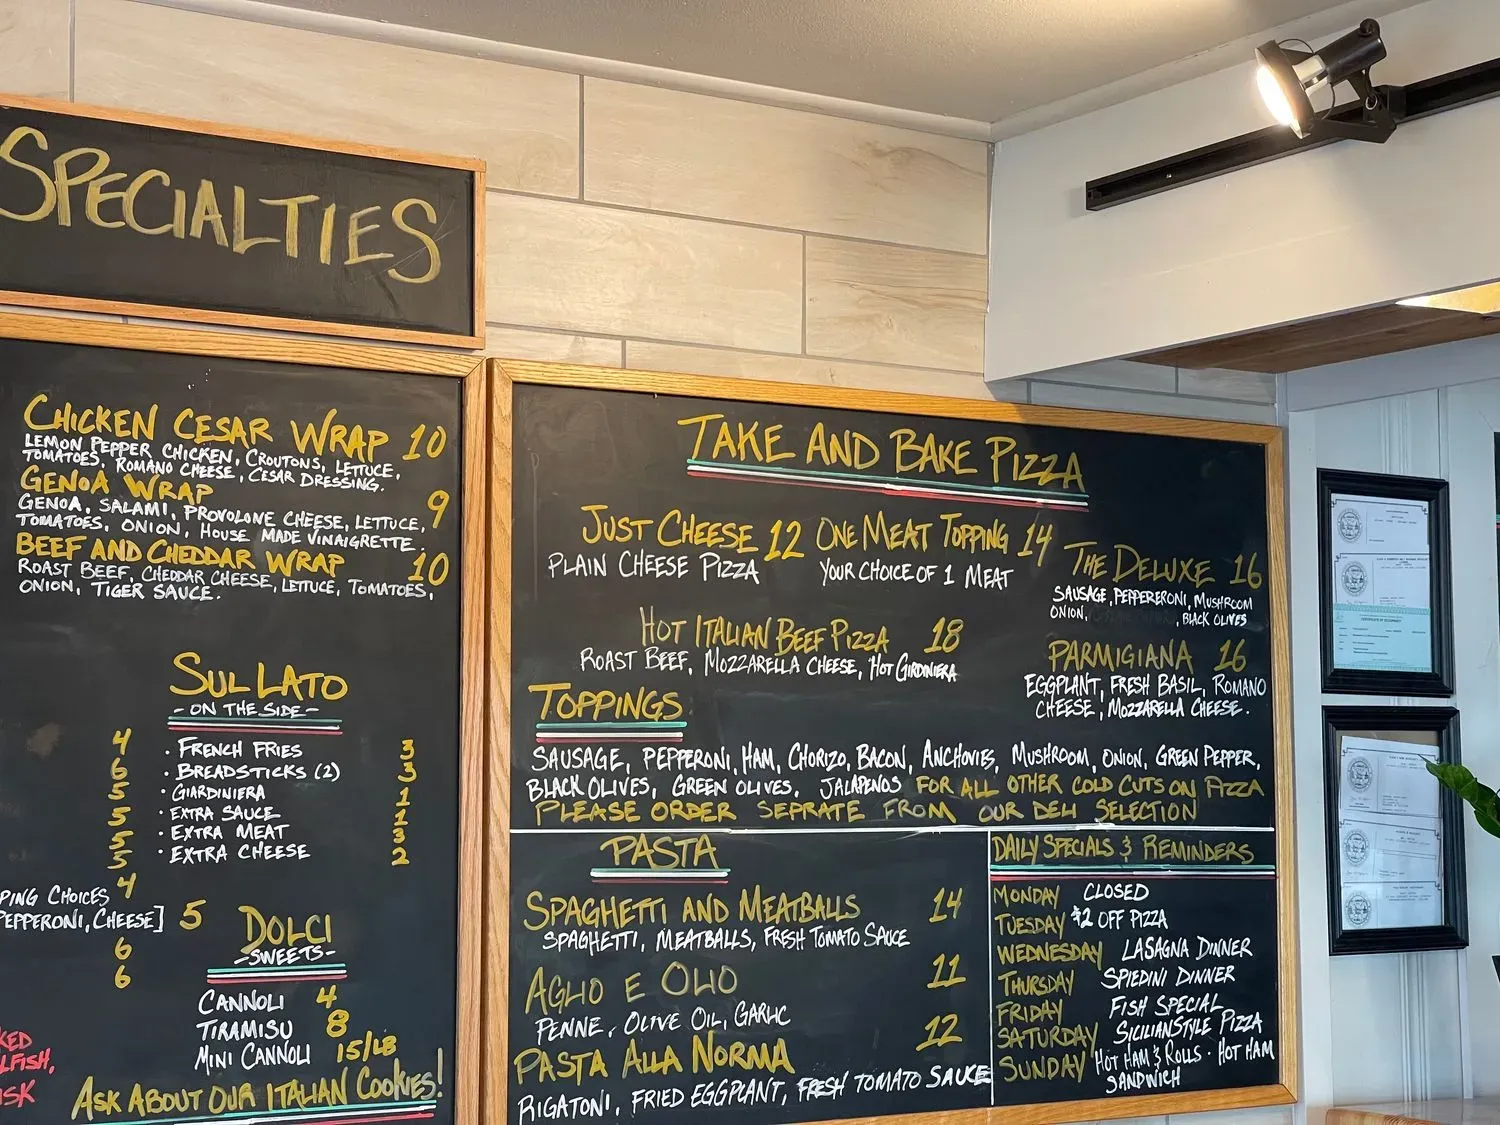 SPECIALTIES
CHICKEN CESAR WRAP 10
LEMON PEPPER CHICKEN, CROUTONS, LETTUCE,
TOMATOES, ROMANO CHEESE, CESAR DRESSING.
GENOA WRAP 9
GENOA, SALAMI, PROVOLONE CHEESE, LETTUCE,
TOMATOES, ONION, HOUSE MADE VINAIGRETTE.
BEEF AND CHEDDAR WRAP 10
ROAST BEEF, CHEDDAR CHEESE, LETTUCE, TOMATOES,
ONION, TIGER SAUCE.
SUL LATO
- ON THE SIDE -
4 · FRENCH FRIES 3
6 · BREADSTICKS (2) 3
5 · GIARDINIERA 1
5 · EXTRA SAUCE 1
5 · EXTRA MEAT 3
5 · EXTRA CHEESE 2
PING CHOICES 4
PEPPERONI, CHEESE] 5
6
6
DOLCI
- SWEETS -
CANNOLI 4
TIRAMISU 8
MINI CANNOLI 15/LB
KED
LFISH,
ISK
ASK ABOUT OUR ITALIAN COOKIES!
TAKE AND BAKE PIZZA
JUST CHEESE 12
PLAIN CHEESE PIZZA
ONE MEAT TOPPING 14
YOUR CHOICE OF 1 MEAT
THE DELUXE 16
SAUSAGE, PEPPERERONI, MUSHROOM
ONION, , BLACK OLIVES
HOT ITALIAN BEEF PIZZA 18
ROAST BEEF, MOZZARELLA CHEESE, HOT GIRDINIERA
PARMIGIANA 16
EGGPLANT, FRESH BASIL, ROMANO
CHEESE, MOZZARELLA CHEESE.
TOPPINGS
SAUSAGE, PEPPERONI, HAM, CHORIZO, BACON, ANCHOVIES, MUSHROOM, ONION, GREEN PEPPER,
BLACK OLIVES, GREEN OLIVES, JALAPENOS FOR ALL OTHER COLD CUTS ON PIZZA
PLEASE ORDER SEPRATE FROM OUR DELI SELECTION
PASTA
SPAGHETTI AND MEATBALLS 14
SPAGHETTI, MEATBALLS, FRESH TOMATO SAUCE
AGLIO E OLIO 11
PENNE, OLIVE OIL, GARLIC
PASTA ALLA NORMA 12
RIGATONI, FRIED EGGPLANT, FRESH TOMATO SAUCE
DAILY SPECIALS & REMINDERS
MONDAY CLOSED
TUESDAY $2 OFF PIZZA
WEDNESDAY LASAGNA DINNER
THURSDAY SPIEDINI DINNER
FRIDAY FISH SPECIAL
SATURDAY SICILIAN STYLE PIZZA
SUNDAY HOT HAM & ROLLS · HOT HAM
SANDWICH